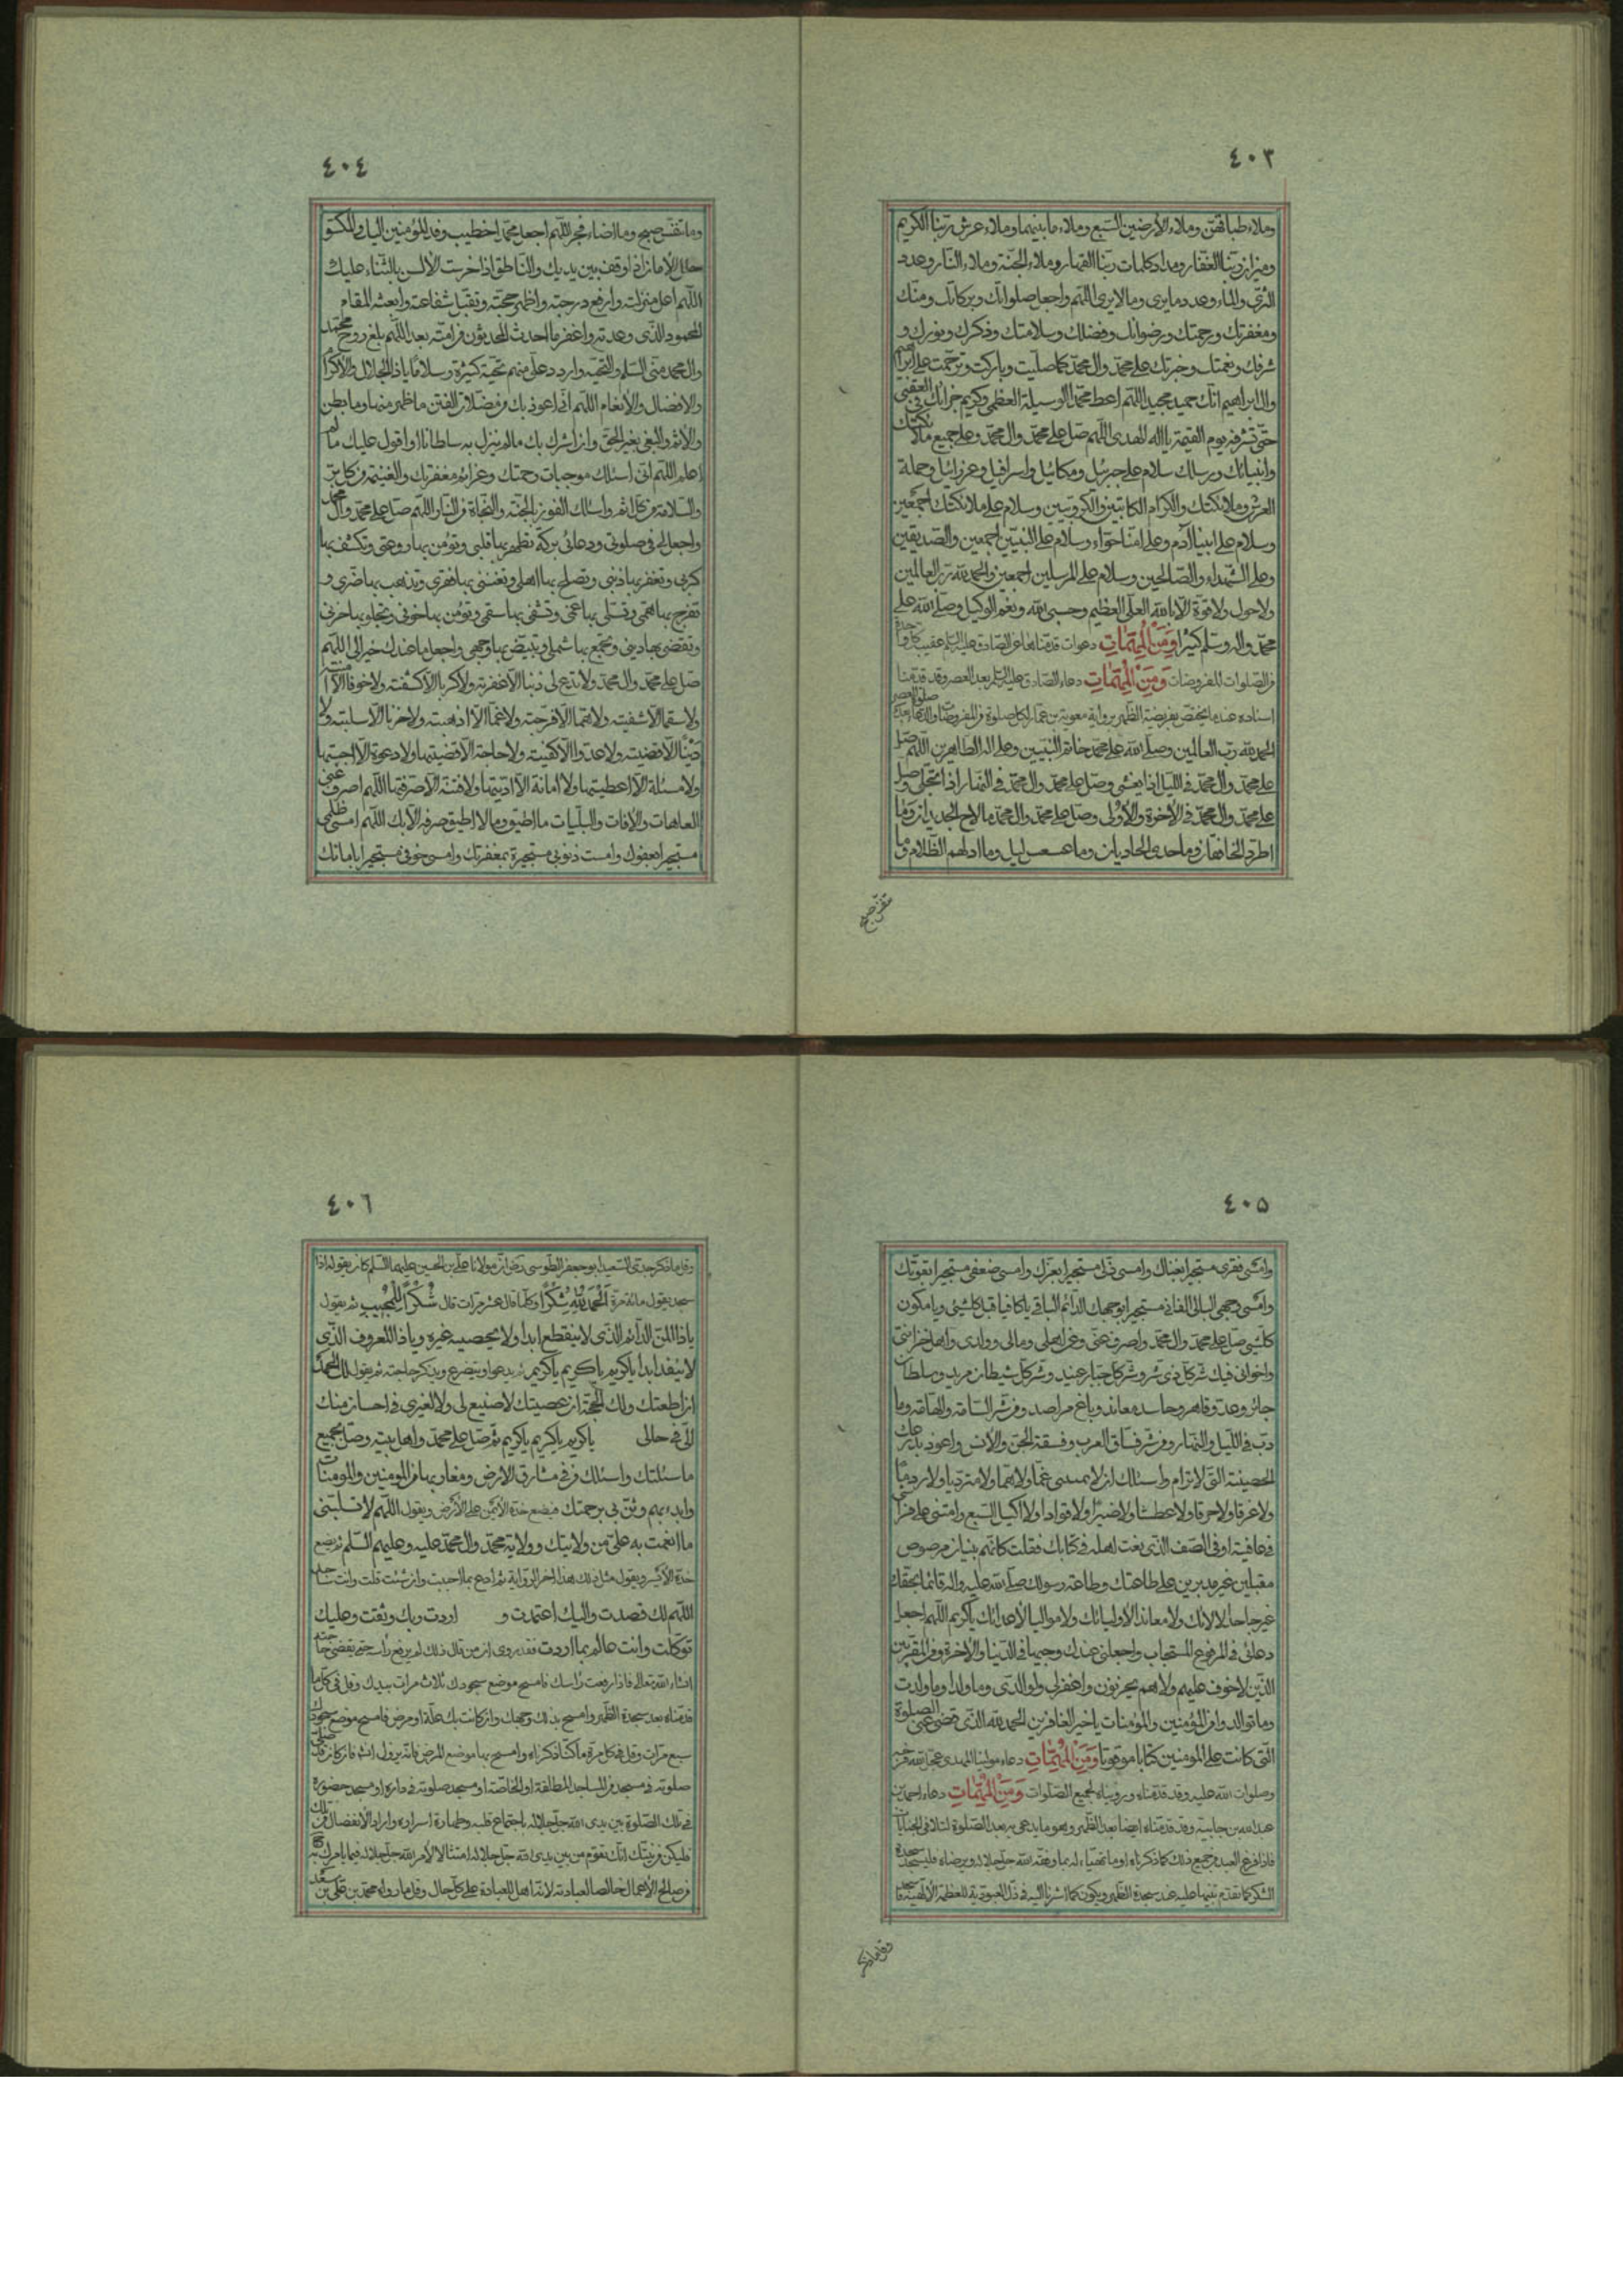 ٤٠٣
وملاء طباقهن وملاء الأرضين السبع وملاء ما بينهما وملاء عرش ربنا الكريم
وميزان ربنا الغفار ومداد كلمات ربنا القهار وملاء الجنة وملاء النار وعدد
الثرى والماء وعدد ما يرى وما لا يرى اللهم واجعل صلواتك وبركاتك ومنك
ومغفرتك ورحمتك ورضوانك وفضلك وسلامتك وذكرك ونورك و
شرفك ونعمتك وخيرتك على محمد وال محمد كما صليت وباركت وترحمت على ابراهيم
وال ابراهيم انك حميد مجيد اللهم اعط محمدا الوسيلة العظمى وكريم جزائك في العقبى
حتى تشرفه يوم القيمة يا اله الهدى اللهم صل على محمد وال محمد وعلى جميع ملائكتك
وانبيائك ورسلك سلام على جبرئيل وميكائيل واسرافيل وعزرائيل وحملة
العرش وملائكتك والكرام الكاتبين والكروبيين وسلام على ملائكتك اجمعين
وسلام على ابينا آدم وعلى امنا حواء وسلام على النبيين اجمعين والصديقين
وعلى الشهداء والصالحين وسلام على المرسلين اجمعين والحمد لله رب العالمين
ولا حول ولا قوة الا بالله العلي العظيم وحسبي الله ونعم الوكيل وصلى الله على
محمد واله وسلم كثيرا ومن المهمات دعوات قدمناها عن الصادق عليه السلم عقيب كل واحدة
من الصلوات المفروضات ومن المهمات دعاء الصادق عليه السلم بعد العصر وقد قدمنا
اسناده عند ما يختص بفريضة الظهر برواية معوية بن عمار لكل صلوة من المفروضات والدعاء بعد صلوة العصر
الحمد لله رب العالمين وصلى الله على محمد خاتم النبيين وعلى اله الطاهرين اللهم صل
على محمد وال محمد في الليل اذا يغشى وصل على محمد وال محمد في النهار اذا تجلى وصل
على محمد وال محمد في الآخرة والأولى وصل على محمد وال محمد ما لاح الجديدان وما
اطرد الخافقان وما حدى الحاديان وما عسعس ليل وما ادلهم الظلام وما
تنفس صبح
٤٠٤
وما تنفس صبح وما اضاء فجر اللهم اجعل محمدا خطيب وفد المؤمنين اليك والمكسو
حلل الأمان اذا وقف بين يديك والناطق اذا خرست الألسن بالثناء عليك
اللهم اعل منزلته وارفع درجته واظهر حجته وتقبل شفاعته وابعثه المقام
المحمود الذى وعدته واغفر ما احدث المحدثون من امته بعده اللهم بلغ روح محمد
وال محمد منى السلم والتحية واردد على منهم تحية كثيرة وسلاما يا ذا الجلال والأكرام
والافضال والأنعام اللهم انى اعوذ بك من مضلات الفتن ما ظهر منها وما بطن
والأثم والبغي بغير الحق وان اشرك بك ما لم ينزل به سلطانا او اقول عليك ما لم
اعلم اللهم انى اسئلك موجبات رحمتك وعزائم مغفرتك والغنيمة من كل بر
والسلامة من كل اثم واسئلك الفوز بالجنة والنجاة من النار اللهم صل على محمد وال محمد
واجعل لي في صلوتى ودعائى بركة تطهر بها قلبى وتؤمن بها روعتى وتكشف بها
كربى وتغفر بها ذنبى وتصلح بها اهلى وتغنى بها فقرى وتذهب بها ضرى و
تفرج بها همى وتسلى بها غمى وتشفى بها سقمى وتؤمن بها خوفى وتجلو بها حزنى
وتقضى بها دينى وتجمع بها شملى وتبيض بها وجهى واجعل ما عندك خيرا لى اللهم
صل على محمد وال محمد ولا تدع لى ذنبا الا غفرته ولا كربا الا كشفته ولا خوفا الا آمنته
ولا سقما الا شفيته ولا هما الا فرجته ولا غما الا اذهبته ولا حزنا الا سلبته ولا
دينا الا قضيته ولا عدوا الا كفيته ولا حاجة الا قضيتها ولا دعوة الا اجبتها
ولا مسئلة الا اعطيتها ولا امانة الا اديتها ولا فتنة الا صرفتها اللهم اصرف عنى
العاهات والافات والبليات ما اطيق وما لا اطيق صرفه الا بك اللهم امسى ظلمى
مستجيرا بعفوك وامست ذنوبى مستجيرة بمغفرتك وامسى خوفى مستجيرا بامانك
٤٠٥
وامسى فقرى مستجيرا بغناك وامسى ذلى مستجيرا بعزك وامسى ضعفى مستجيرا بقوتك
وامسى وجهى البالى الفانى مستجيرا بوجهك الدائم الباقى يا كائنا قبل كل شئ ويا مكون
كل شئ صل على محمد وال محمد واصرف عنى وعن اهلى ومالى وولدى واهل حزانتى
واخوانى فيك شر كل ذى شر وشر كل جبار عنيد وشر كل شيطان مريد وسلطان
جائر وعدو قاهر وحاسد معاند وباغ مراصد ومن شر السامة والهامة وما
دب في الليل والنهار ومن شر فساق العرب وفسقة الجن والأنس واعوذ بدرعك
الحصينة التى لا ترام واسئلك ان لا تميتنى غما ولا هما ولا مترديا ولا ردما
ولا غرقا ولا حرقا ولا عطشا ولا صبرا ولا قودا ولا اكيل السبع وامتنى على فراشى
في عافية او في الصف الذى نعت اهله في كتابك فقلت كانهم بنيان مرصوص
مقبلين غير مدبرين على طاعتك وطاعة رسولك صلى الله عليه واله قائما بحقك
غير جاحد لالائك ولا معاندا لأوليائك ولا مواليا لأعدائك يا كريم اللهم اجعل
دعائى في المرفوع المستجاب واجعلنى عندك وجيها في الدنيا والاخرة ومن المقربين
الذين لا خوف عليهم ولا هم يحزنون واغفر لى ولوالدى وما ولدا وما ولدت
وما توالدوا من المؤمنين والمؤمنات يا خير الغافرين الحمد لله الذى قضى عنى الصلوة
التى كانت على المومنين كتابا موقوتا ومن المهمات دعاء مولينا المهدى عجل الله فرجه
وصلوات الله عليه وقد قدمناه ورويناه لجميع الصلوات ومن المهمات دعاء احمد بن
عبد الله بن جابية وقد قدمناه ايضا بعد الظهر وهو ما يدعى به بعد الصلوة لتلافى الجنايات
فاذا فرغ العبد من جميع ذلك كما ذكرناه او ما تهيأ له بما وفقه الله جل جلاله ويرضاه فليسجد سجدة
الشكر كما تقدم تنبيهنا عليه عند سجدة الظهر ويكون كما اشرنا اليه في ذل العبودية للعظمة الالهية
وقل ما ذكر
٤٠٦
وقل ما ذكر جدى السعيد ابو جعفر الطوسى رض ان مولانا على بن الحسين عليهما السلم كان يقوله اذا
سجد يقول مائة مرة الحمد لله شكرا وكلما قال عشر مرات قال شكرا للمجيب ثم يقول
يا ذا المن الدائم الذى لا ينقطع ابدا ولا يحصيه غيره ويا ذا المعروف الذى
لا ينفد ابدا يا كريم يا كريم يا كريم ثم يدعوا ويتضرع ويذكر حاجته ثم يقول لك الحمد
ان اطعتك ولك الحجة ان عصيتك لا صنيع لى ولا لغيرى في احسان منك
الى في حالى يا كريم يا كريم يا كريم ثم صل على محمد واهل بيته وصل بجميع
ما سئلتك واسئلك من في مشارق الارض ومغاربها من المومنين والمومنات
وابدء بهم وثن بى برحمتك فيضع خده الأيمن على الأرض ويقول اللهم لا تسلبنى
ما انعمت به على من ولايتك وولاية محمد وال محمد عليه وعليهم السلم ثم يضع
خده الأيسر ويقول مثل ذلك هذا اخر الرواية ثم ادع بما احببت وان شئت قلت وانت ساجد
اللهم لك قصدت واليك اعتمدت و اردت وبك وثقت وعليك
توكلت وانت عالم بما اردت فقد روى ان من قال ذلك لم يرفع رأسه حتى تقضى حاجته
انشاء الله تعالى فاذا رفعت رأسك فامسح موضع سجودك ثلاث مرات بيدك وقل في كل ما
قدمناه بعد سجدة الظهر وامسح بذلك وجهك وان كانت بك علة او مرض فامسح موضع سجودك
سبع مرات وقل في كل مرة ما كنا ذكرناه وامسح بها موضع المرض فانه يزول انش فان كان قد صلى
صلوته في مسجد من المساجد المطلقة او الخاصة او مسجد صلوته في داره او مسجد حضوره
في تلك الصلوة بين يدى الله جل جلاله باجتماع قلبه وطهارة اسراره واراد الانفصال من تلك
فليكن من نيتك انك تقوم من بين يدى الله جل جلاله امتثالا لأمر الله جل جلاله فيما يأمرك به
من صالح الأعمال خالصا لعبادته لانه اهل للعبادة على كل حال وقل ما رواه محمد بن على بن سعد